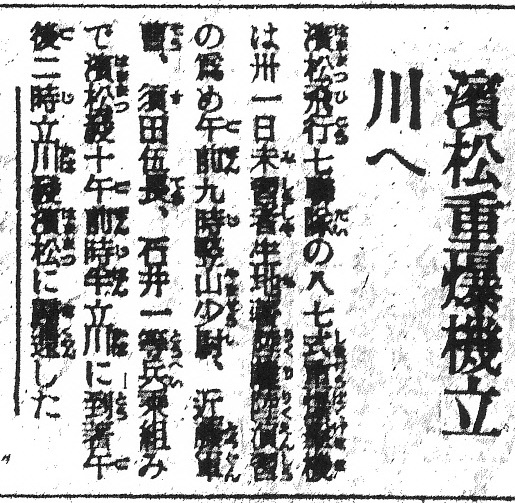 濱松重爆機立
川へ
濱松飛行七聯隊の八七式重爆撃機
は卅一日未着陸演習
の爲め午前九時 山少尉、近藤軍
曹、須田伍長、石井一等兵乘組み
で濱松發十午前時半立川に到着午
後二時立川發濱松に歸還した